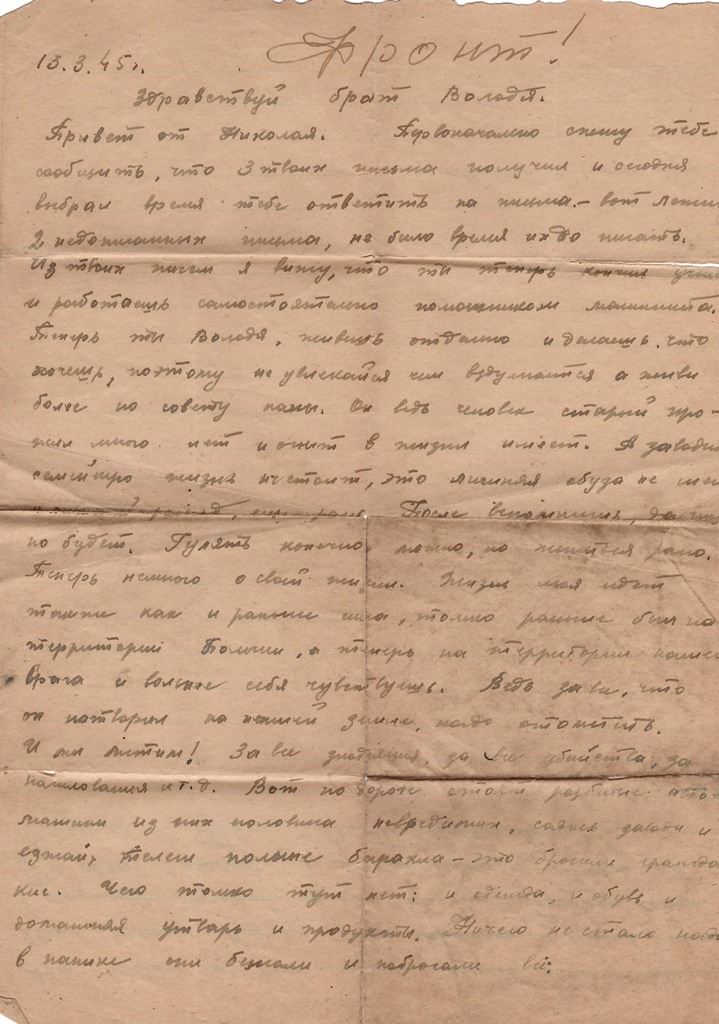 13.3.45г. Фронт!
Здравствуй брат Володя.
Привет от Николая. Первоначально спешу тебе
сообщить, что 3 твоих письма получил и сегодня
выбрал время тебе ответить на письма. – вот лежит
2 недописанных письма, не было время их до писать.
Из твоих писем я вижу, что ты теперь кончил
и работаешь самостоятельно помощником машиниста.
Теперь ты Володя, живешь отдельно и делаешь что
хочешь, поэтому не увлекайся чем вздумается а живи
более по совету папы. Он ведь человек старый про-
жил много лет и опыт в жизни имеет. А заводить
семейную жизнь не стоит, это лишняя обуза не
После вспомнишь, да
но будет. Гулять конечно можно, но жениться рано.
Теперь немного о своей жизни. Жизнь моя идет
также как и раньше шла, только раньше был на
территории Польши, а теперь на территории нашего
врага и вольнее себя чувствуешь. Ведь за все, что
он натворил на нашей земле, надо отомстить.
И мы мстим! За все злодеяния, за все убийства, за
насилования и т.д. Вот по дороге стоят разбитые авто-
машины из них половина невредимых, садись заводи и
езжай, полные барахла – это бросили граждан
кие. Чего только тут нет: и одежда, и обувь и
домашняя утварь и продукты. Ничего не стало надо
в панике они бежали и побросали все.